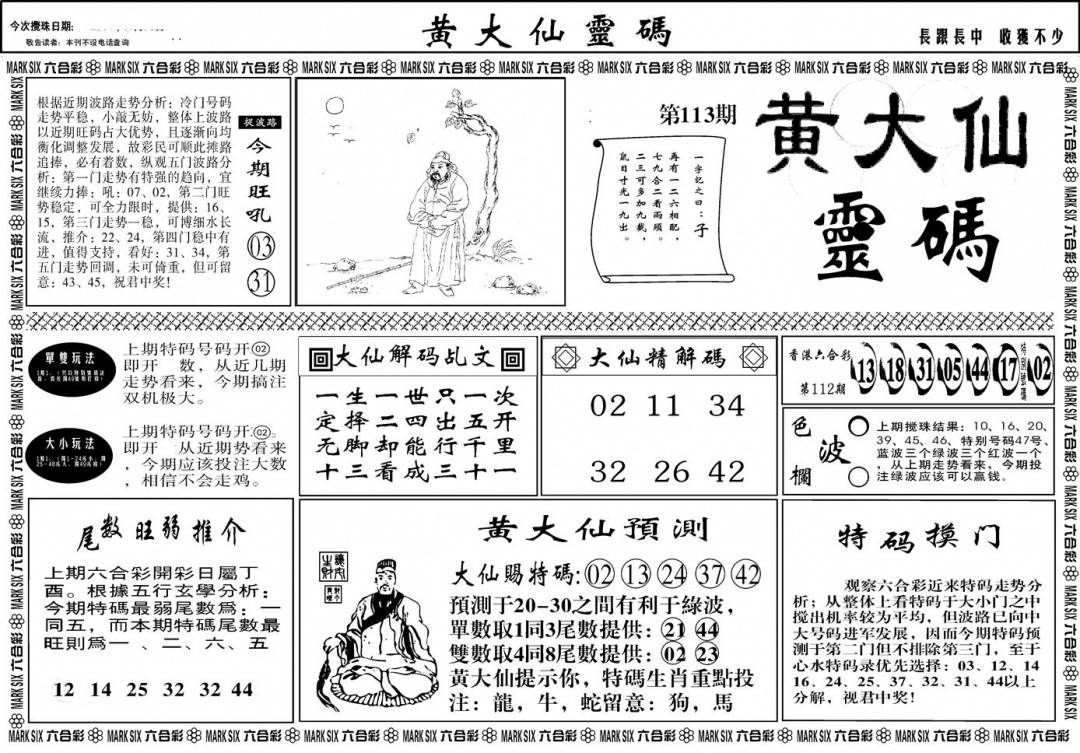 今次攪珠日期:
敬告读者：本刊不设电话查询
黄大仙靈碼
長跟長中 收獲不少
MARK SIX 六合彩 MARK SIX 六合彩 MARK SIX 六合彩 MARK SIX 六合彩 MARK SIX 六合彩 MARK SIX 六合彩 MARK SIX 六合彩 MARK SIX 六合彩 MARK SIX 六合彩 MARK SIX 六合彩 MARK SIX 六合彩
根据近期波路走势分析：冷门号码
走势平稳，小敲无妨，整体上波路
以近期旺码占大优势，且逐渐向均
衡化调整发展，故彩民可顺此摊路
追捧，必有着数，纵观五门波路分
析：第一门走势有特强的趋向，宜
继续力捧：吼：07、02，第二门旺
势稳定，可全力限时，提供：16、
15，第三门走势一稳，可博细水长
流，推介：22、24，第四门稳中有
进，值得支持，看好：31、34，第
五门走势回调，未可倚重，但可留
意：43、45，祝君中奖！
捉波路
今期旺吼
03
31
第113期
一字记之曰：子
再有一二六相配，
七九合二看两头。
二三可多加九截，
鼠目寸光一九出。
黄大仙
靈碼
單雙玩法
上期特码号码开02
即开 数，从近几期
走势看来，今期搞注
双机极大。
大小玩法
上期特码号码开02。
即开 从近期势看来
，今期应该投注大数
，相信不会走鸡。
大仙解码乩文
一生一世只一次
定择二四出五开
无脚却能行千里
十三看成三十一
大仙精解碼
02 11 34
32 26 42
香港六合彩
第112期
13 18 31 05 44 17 特别號碼 02
色波欄
上期搅珠结果：10、16、20、
39、45、46、特别号码47号、
蓝波三个绿波三个红波一个
，从上期走势看来，今期投
注绿波应该可以赢钱。
尾数旺弱推介
上期六合彩開彩日屬丁
酉。根據五行玄學分析：
今期特碼最弱尾數爲：一
同五，而本期特碼尾數最
旺則爲一 、二、六、五
12 14 25 32 32 44
黄大仙預測
大仙賜特碼:02 13 24 37 42
預測于20-30之間有利于綠波，
單數取1同3尾數提供：21 44
雙數取4同8尾數提供：02 23
黄大仙提示你，特碼生肖重點投
注：龍，牛，蛇留意：狗，馬
特码摸门
观察六合彩近来特码走势分
析；从整体上看特码于大小门之中
搅出机率较为平均，但波路已向中
大号码进军发展，因而今期特码预
测于第二门但不排除第三门，至于
心水特码录优先选择：03、12、14
16、24、25、37、32、31、44以上
分解，祝君中奖！
MARK SIX 六合彩 MARK SIX 六合彩 MARK SIX 六合彩 MARK SIX 六合彩 MARK SIX 六合彩 MARK SIX 六合彩 MARK SIX 六合彩 MARK SIX 六合彩 MARK SIX 六合彩 MARK SIX 六合彩 MARK SIX 六合彩